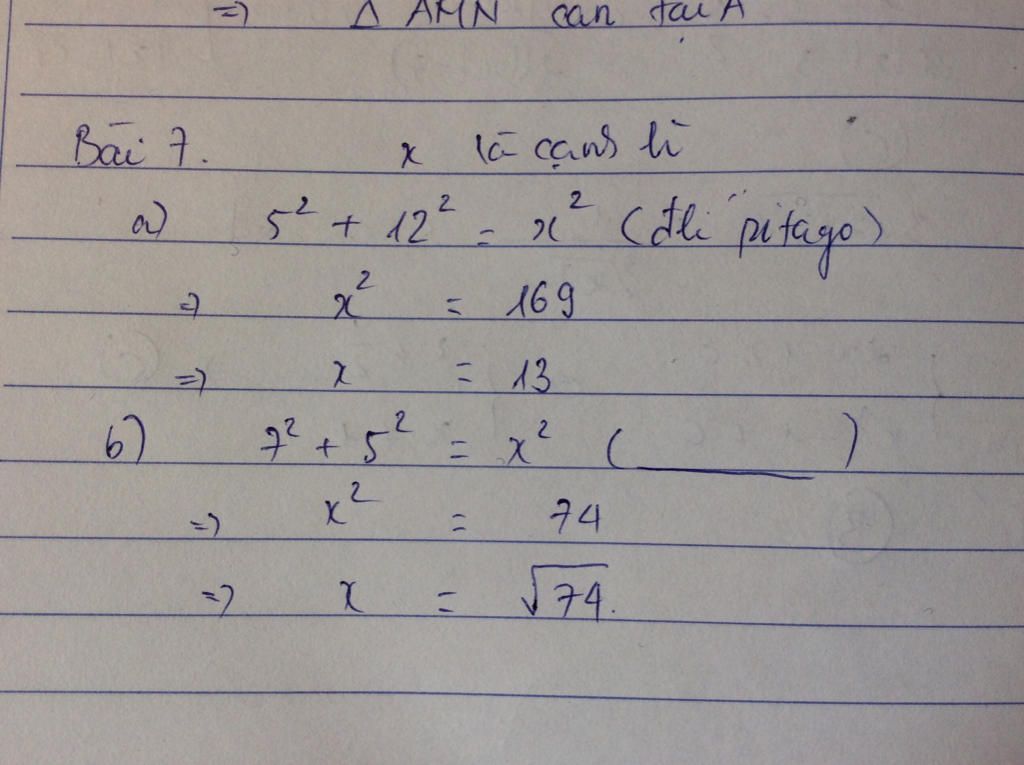 => Δ AMN cân tại A
Bài 7. x là cạnh
a) 5² + 12² = x² (đli pitago)
=> x² = 169
=> x = 13
b) 7² + 5² = x² ( ______ )
=> x² = 74
=> x = √74.